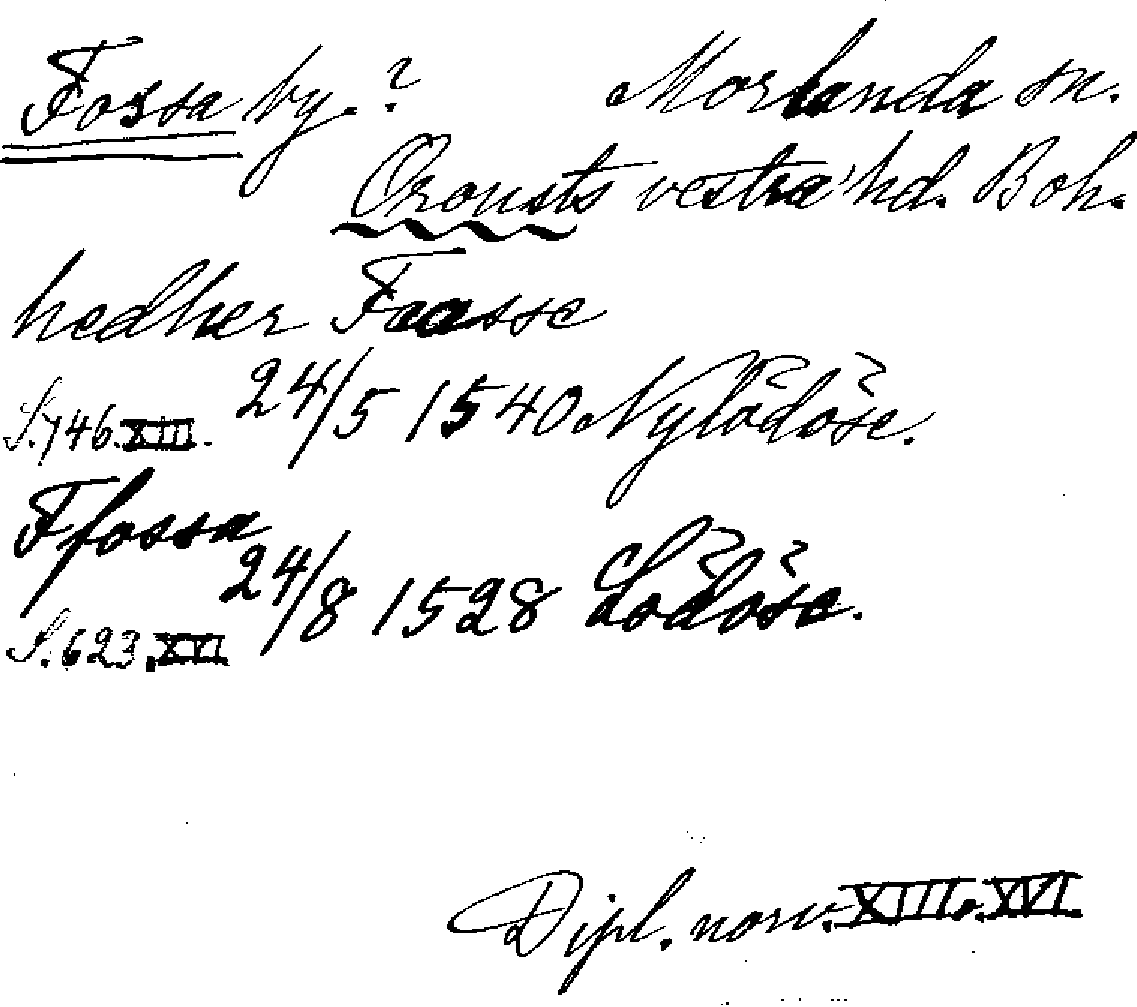 Fossa by. ? Morlanda sn.
Orousts vestra hd. Boh.
hedher Faasse
S. 746. XIII. 24/5 1540 Nylödöse.
Ffossa
S. 623. XVI. 24/8 1528 Lödöse.
Dipl. norv. XIII o. XVI.